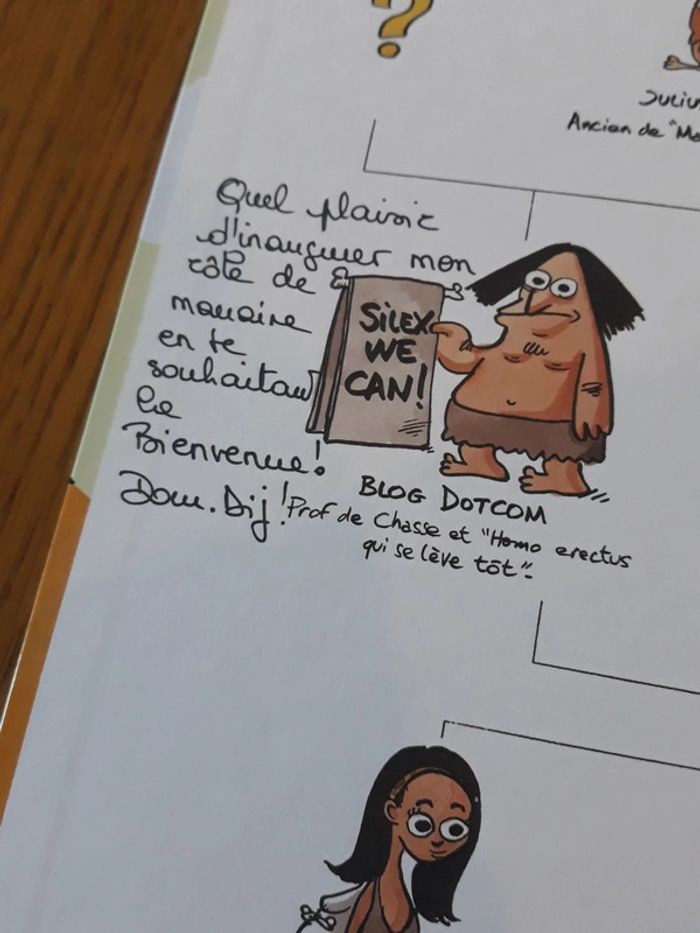 ?
Juliu
Ancien de "Mo
Quel plaisir
d'inaugurer mon
rôle de
en te
souhaitant
la
Bienvenue!
Dom. Dij!
SILEX
WE
CAN!
BLOG DOTCOM
Prof de Chasse et "Homo erectus
qui se lève tôt".